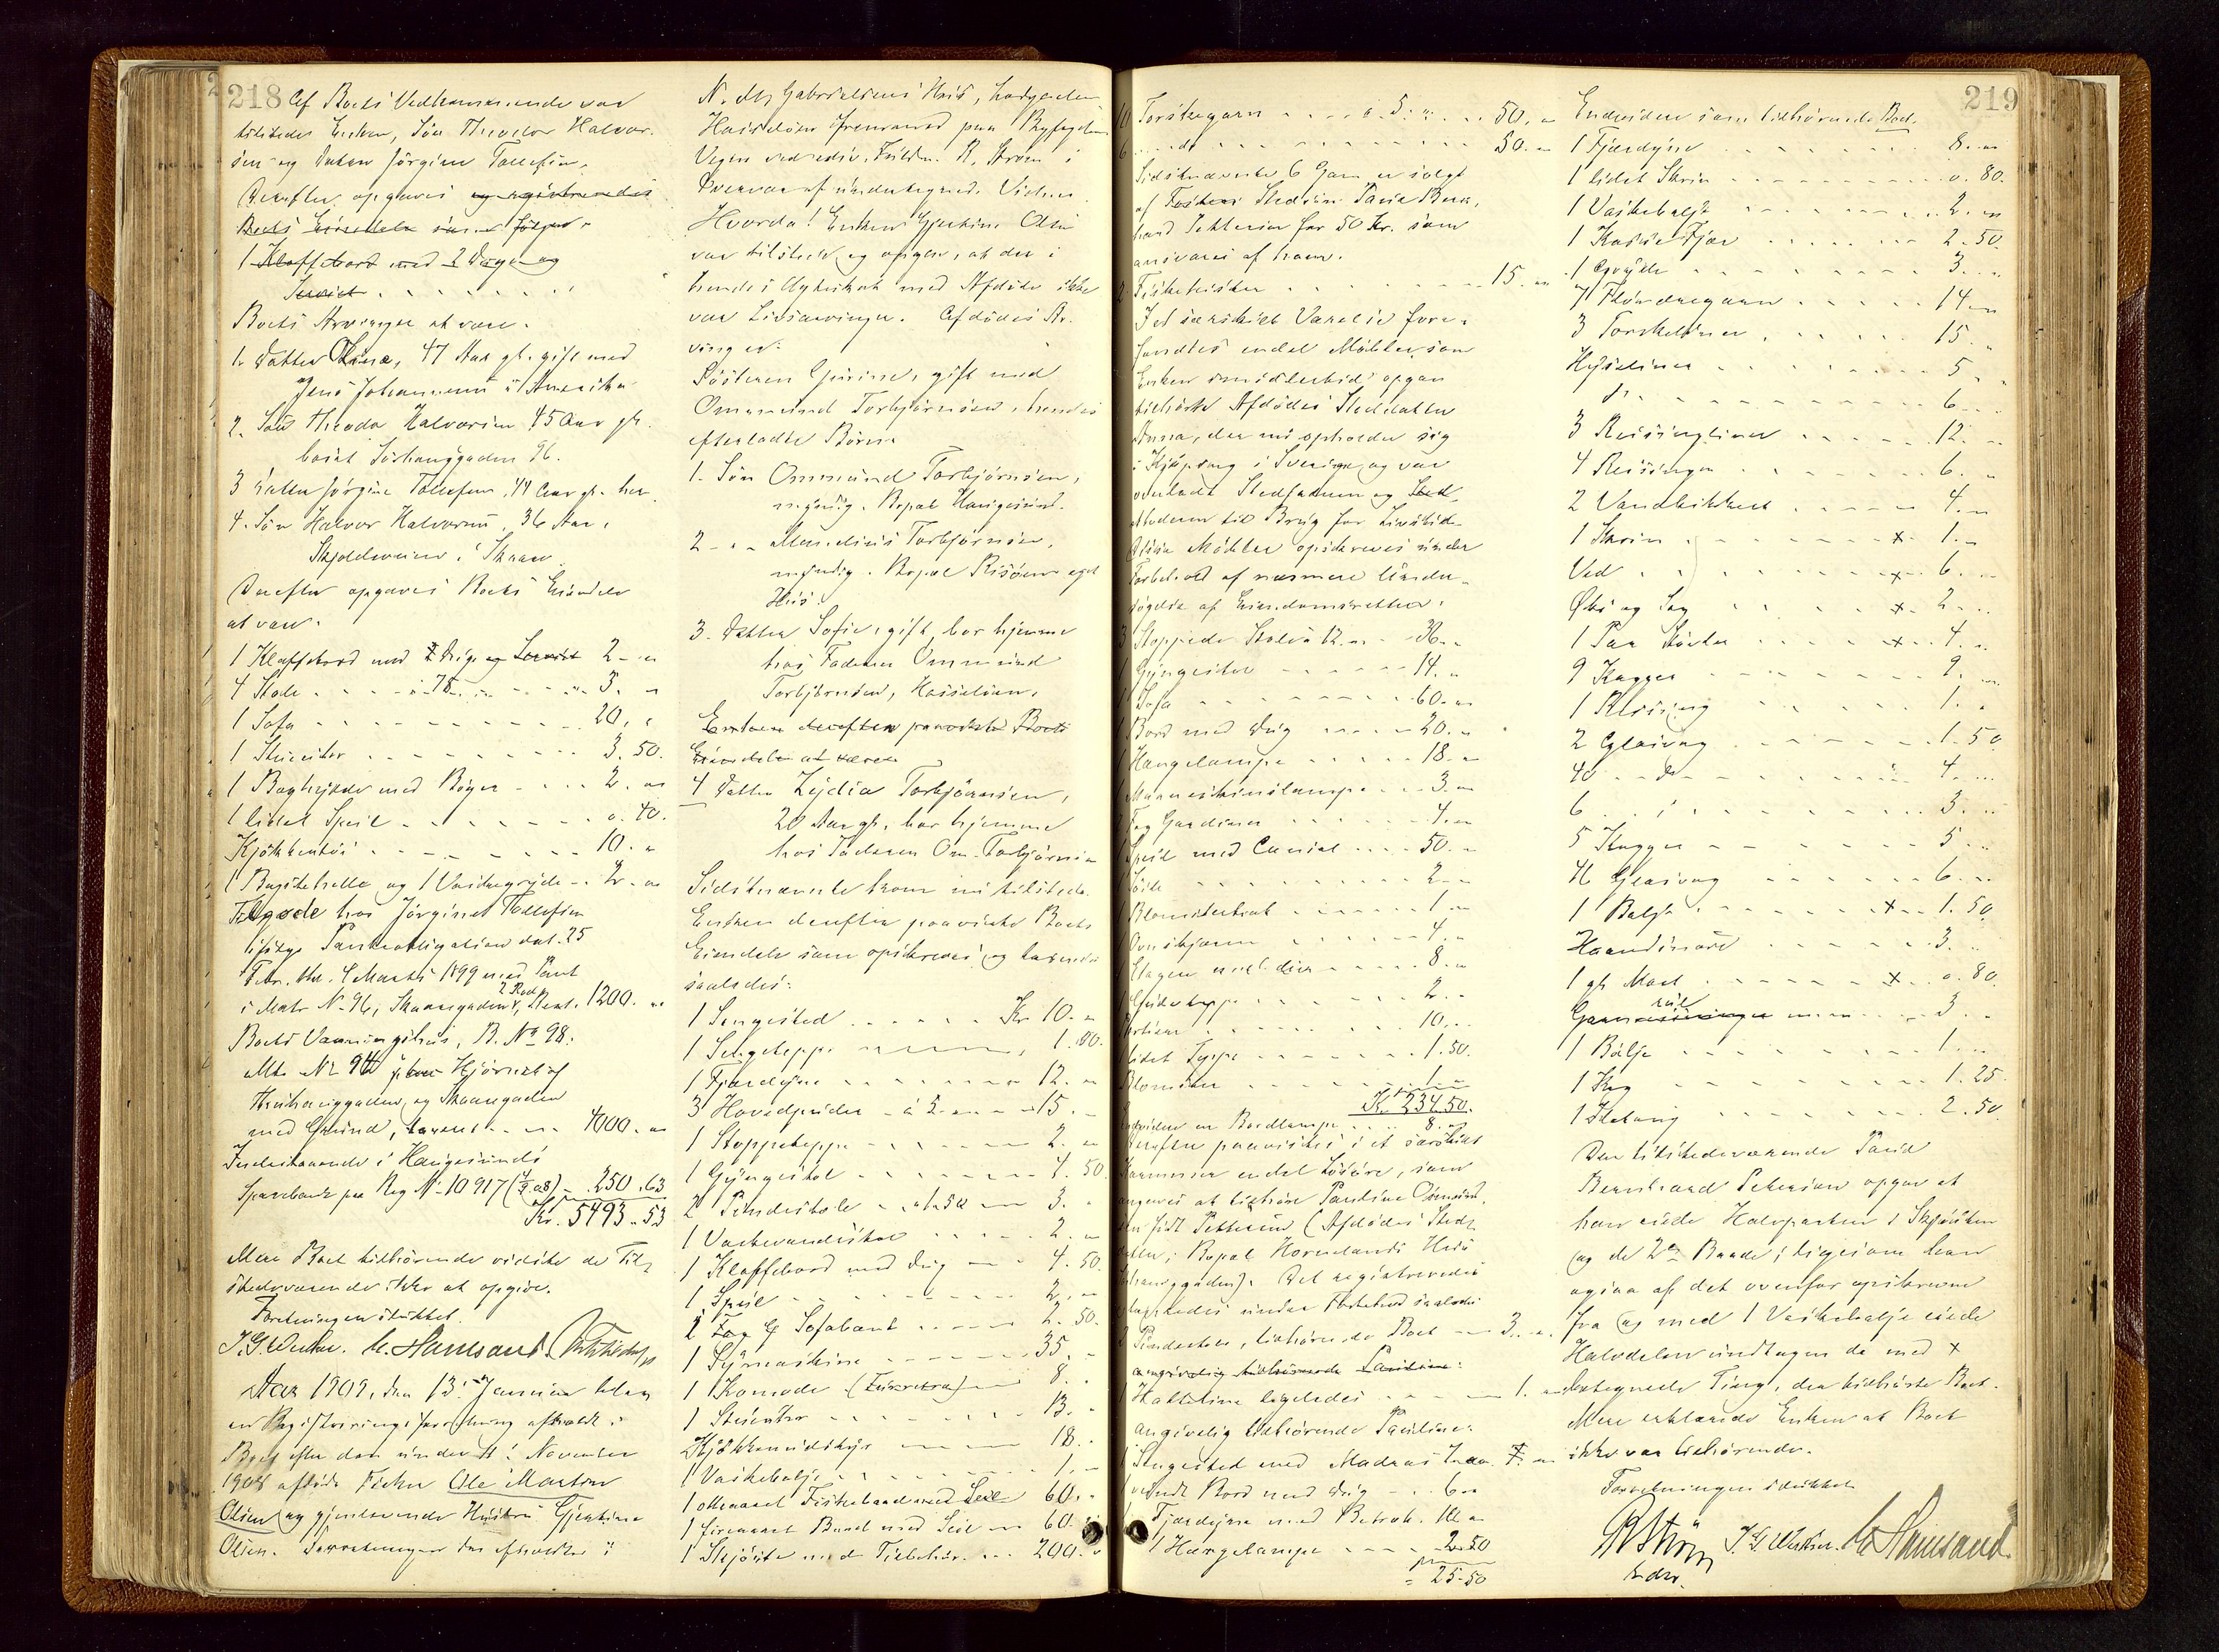 218
Af Boets Vedkommende var
tilstede Enken, Søn Theodor Halvor-
sen og Datter Jørgine Tollefsen.
Derefter opgaves og registreredes
Boets Eiendele som følger:
1 Klaffebord med 2 Duge og
Servict
Boets Arvinger at være:
1. Datter Oline, 47 Aar gl. gift med
Jens Johannesen i Amerika
2. Søn Theodor Halvorsen 45 Aar gl.
bosat Sørhauggaden 96.
3 Datter Jørgine Tollefsen, 41 Aar gl. her
4. Søn Halvor Halvorsen, 36 Aar,
Skjoldeveien i Skaare
Derefter opgaves Boets Eiendele
at være:
1 Klaffebord med 2 Duge og Servict 2 - "
4 Stole . . . à 75 . . . 3. "
1 Sofa . . . 20. "
1 Stueuhr . . . 3.50.
1 Boghylde med Bøger . . . 2. "
1 lidet Speil . . . 0.40.
Kjøkkentøi . . . 10. "
1 Bagstehelle og 1 Vaskegryde . . 2. "
Tilgode hos Jørgines Tollefsen
ifølge Panteobligation dat. 25
Febr. thl. 4 Marts 1899 med Pant
i Matr N. 96, Skaaregaden, 2 Prd. Rest. 1200. "
Boets Vaaningshus, B. No 98.
Mtr. No 94 paa Hjørnet af
Haukanggaden og Skaaregaden
med Grund, taxeret . . . 4000. "
Indestaaende i Haugesunds
Sparebank paa Reg N. 10917 (1/7 08) - 250.63
Kr. 5493.53
Mere Boet tilhørende vidste de Til-
stedeværende ikke at opgive.
Forretningen sluttet.
J. G. Weltzin. M. Hamsand.
Aar 1909, den 13. Januar blev
en Registreringsforretning afholdt i
Boet efter den under 4. November
1908 afdøde Fisker Ole Martin
Olsen og gjenlevende Hustru Gjertine
Olsen. Forretningen blev afholdt i
N. M. Gabrielsens Hus, Lodgaden
Hasseløen Grensende paa Byfogdens
Vegne ved edsv. Fuldm. R. Strøm i
Overvær af undertegnede Vidner
Hvorda! Enken Gjertine Olsen
var tilstede og opgav, at der i
hendes Ægteskab med Afdøde ikke
var Livsarvinger. Afdødes Ar-
vinger:
Søsteren Gurine, gift med
Ommund Torbjørnsen, hendes
efterladte Børn:
1. Søn Ommund Torbjørnsen,
myndig. Bopæl Haugesund.
2 - " - Mandius Torbjørnsen,
myndig. Bopæl Risøen eget
Hus.
3. Datter Sofie, gift, bor hjemme
hos Faderen Ommund
Torbjørnsen, Hasseløen.
Enken derefter paaviste Boets
Eiendele at være
4 Datter Lydia Torbjørnsen,
20 Aar gl., bor hjemme
hos Faderen Om. Torbjørnsen
Sidstnævnte kom nu tilstede.
Enken derefter paaviste Boets
Eiendele som opskreves og taxeredes
saaledes:
1 Sengested . . . Kr 10. "
1 Sengeteppe . . . 1.00.
1 Fjærdyne . . . 12. "
3 Hovedpuder - à 5. " . . 15. "
1 Stoppeteppe . . . 2. "
1 Gyngestol . . . 4.50
2 Pindestole . . à 1.50 . . 3. "
1 Vaskevandsstol . . . 2. "
1 Klaffebord med Dug . . . 4.50.
1 Speil . . . 2. "
2 Fag Sofabænk . . . 2.50.
1 Symaskine . . . 35. "
1 Komode . . . 8. "
1 Stueuhr . . . 13. "
Kjøkkenudstyr . . . 18. "
1 Vaskebalje . . . 1. "
1 ottesaaret Fiskebaad med Seil 60. "
1 firesaaret Baad med Seil . . 60. "
1 Skjøite med Tilbehør . . . 200. "
219
10 Torskegarn . . . à 5. " . . . 50. "
6 . . . do . . . 30. "
Sidstnævnte 6 Garn er solgt
af Søsters Stedsøn Paul Bern-
hard Pettersen for 50 Kr. som
ansvares af ham.
2 Fiskekister . . . 15. "
I et særskilt Værelse fore-
fandtes endel Møbler, som
Enken imidlertid opgav
tilhørte Afdødes Steddatter
Anna, der nu opholder sig
i Kjøping i Sverige og var
overladt Stedfaderen og Sted-
Moderen til Brug for Livstid.
Disse Møbler opskreves under
Forbehold af nærmere Undersø-
gelse af Eiendomsretten.
3 Stoppede Stole à 12. " . . 36. "
1 Gyngestol . . . 14. "
1 Sofa . . . 60. "
1 Bord med Dug . . . 20. "
1 Hængelampe . . . 18. "
1 Maaneskinslampe . . . 3. "
2 Fag Gardiner . . . 4. "
1 Speil med Consol . . . 50. "
. . . 2. "
1 Blomsterbræt . . . 1. "
1 Ovnskjærm . . . 4. "
1 Etagere med dito . . . 8. "
1 Gulvteppe . . . 2. "
Portiere . . . 10. "
1 lidet Teppe . . . 1.50.
Blomster . . . 1. "
Kr. 234.50.
Endvidere en Bordlampe . . . 8. "
Derefter paavistes i et særskilt
Kammer endel Løsøre, som
angaves at tilhøre Pauline Osmund-
sen født Pettersen (Afdødes Sted-
datter, Bopæl Hornelands Hus
Skauggaden). Det registreredes
ligeledes under Forbehold saaledes
2 Pindestole, tilhørende Boet . . . 3. "
angivelig tilhørende Pauline:
1 Hatteline ligeledes . . . 1. "
angivelig tilhørende Pauline:
1 Sengested med Madras . . . 7. "
1 rundt Bord med Dug . . . 6. "
1 Fjærdyne med Betræk . . 10. "
1 Hængelampe . . . 2.50
= 25.50
Endvidere som tilhørende Boet.
1 Fjærdyne . . . 8. "
1 lidet Skrin . . . 0.80.
1 Vaskebalje . . . 2. "
1 Kasse Fjær . . . 2.50.
1 Gryde . . . 3. "
7 Flyndregarn . . . 14. "
3 Torskeliner . . . 15. "
Hyseliner . . . 5. "
do . . . 6. "
3 Reisingliner . . . 12. "
4 Reisinger . . . 6. "
2 Vandbikker . . . 4. "
1 Skrin . . . x. 1. "
Ved . . . x. 6. "
Øks og Sag . . . x. 2. "
1 Par Støvler . . . x. 4. "
9 Kagger . . . 9. "
1 Reising . . . 1. "
2 Glasvag . . . 1.50
40 . . do . . . 4. "
6 . . . 3. "
5 Kagger . . . 5. "
46 Glasvag . . . 6. "
1 Balje . . . x . 1.50
Haandsnøre . . . 3. "
1 gl. Mast . . . x. 0.80.
Garn m. m. . . . 3. "
1 Balje . . . 1. "
1 Keg . . . 1.25
1 Stetaug . . . 2.50
Den tilstedeværende Paul
Bernhard Petersen opgav at
han eiede Halvparten i Skjøiten
og de 2de Baade; ligesom han
ogsaa af det ovenfor opskrevne
fra og med 1 Vaskebalje eiede
Halvdelen undtagen de med x
betegnede Ting, der tilhørte Boet.
Mere erklærede Enken at Boet
ikke var tilhørende.
Forretningen sluttet.
R Strøm J. G. Weltzin. M. Hamsand.
edsv.